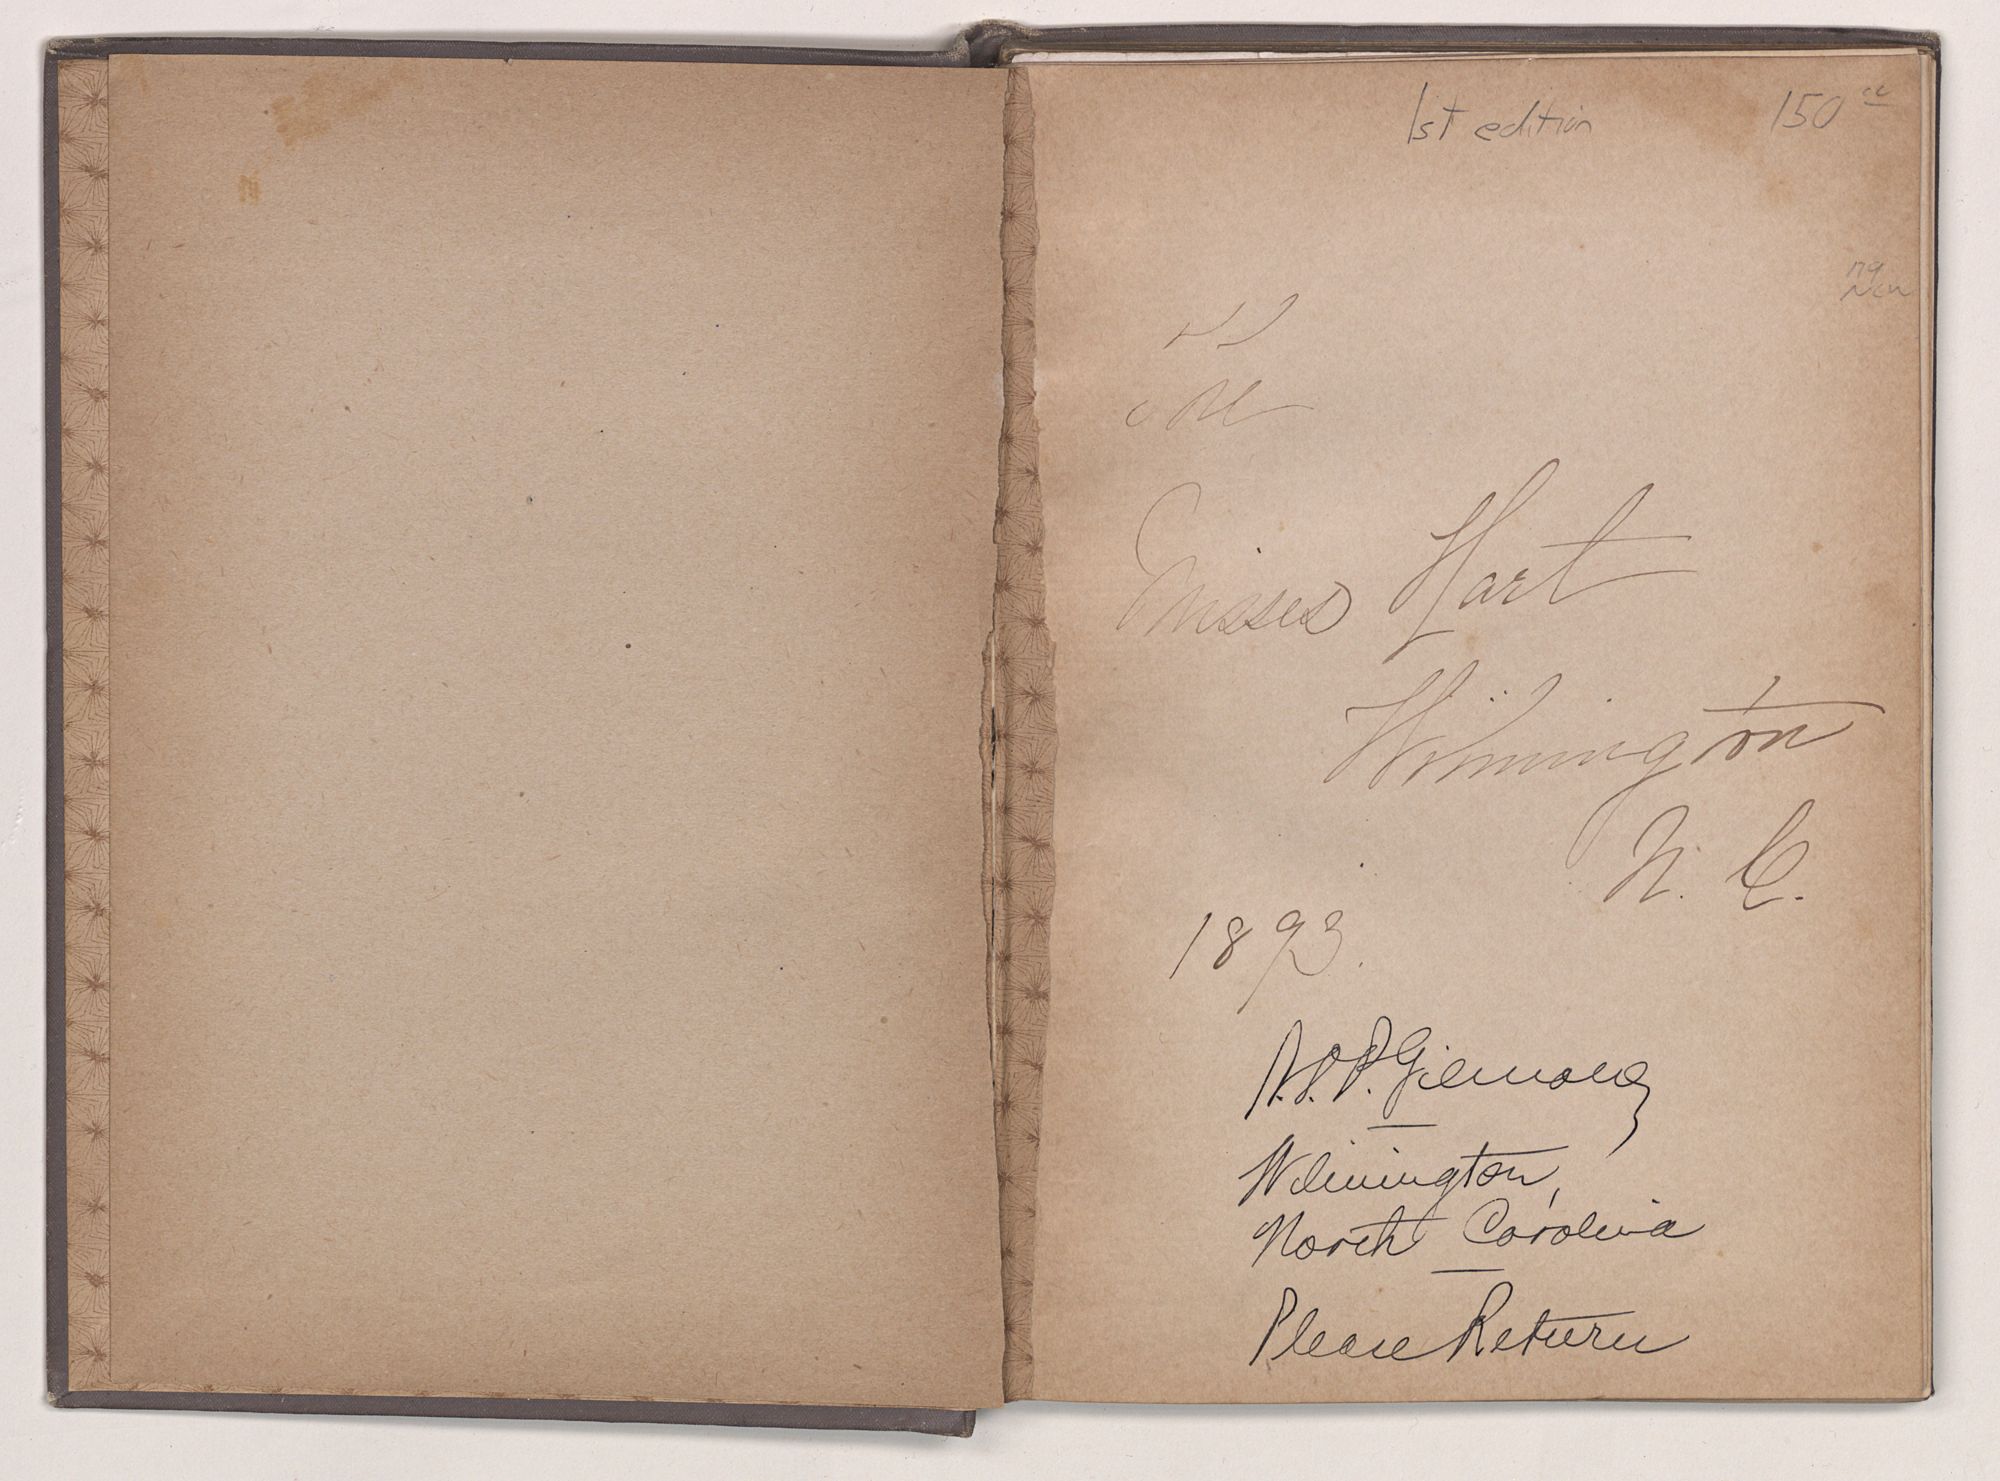 1st edition 150
Misses Hart
Wilmington
N. C.
1893.
P. Gilmore
Wilmington,
North Carolina
Please Return